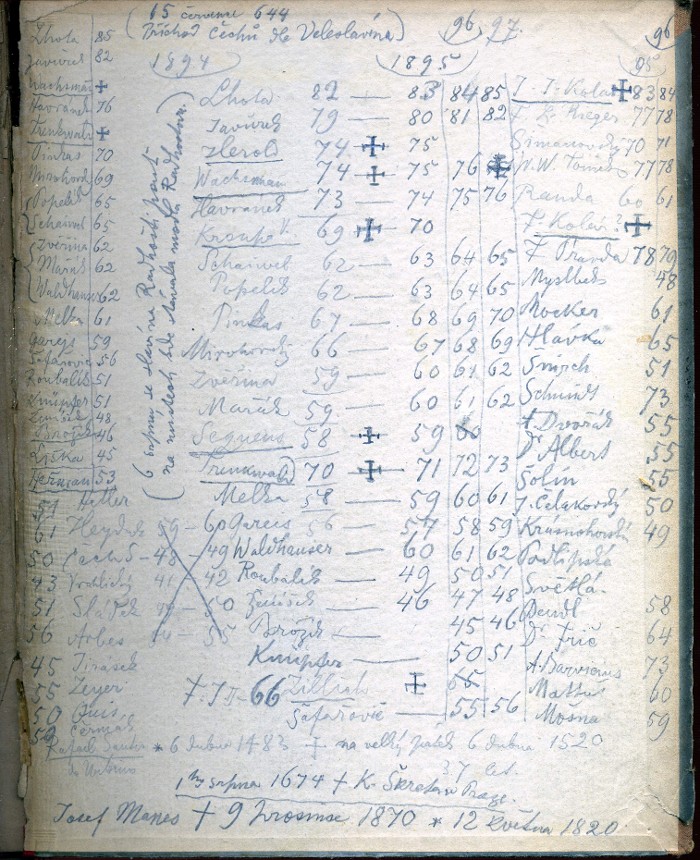 ( 15 červenec 644
Příchod Čechů dle Veleslavína )
96 97.
96
1894
1895
95
Lhota 85
Javůrek 82
Wachsman ✝
Havránek 76
Trenkwald ✝
Pinkas 70
Mirohorský 69
Popelík 65
Scheiwl 65
Zvěřina 62
Mařák 62
Waldhauser 62
Melka 61
Gareis 59
Šafařovič 56
Roubalík 51
Knüpfer 51
Ženíšek 48
Brožík 46
Liška 45
Heřman 53
( 6 srpna se slaví na Radhošti
Lhota 82 — 83 84 85
Javůrek 79 — 80 81 82
Herold 74 ✝ 75
Wachsman 74 ✝ 75 76 ✝
Havránek 73 — 74 75 76
Kroupa V. 69 ✝ 70
Scheiwl 62 — 63 64 65
Popelík 62 — 63 64 65
Pinkas 67 — 68 69 70
Mirohorský 66 — 67 68 69
Zvěřina 59 — 60 61 62
Mařák 59 — 60 61 62
Sequens 58 ✝ 59 60
Trenkwald 70 ✝ 71 72 73
Melka 58 — 59 60 61
Gareis 56 — 57 58 59
Waldhauser — 60 61 62
Roubalík — 49 50 51
Ženíšek — 46 47 48
Brožík — 45 46
Knüpfer — 50 51
Zillich ✝ 66
Šafařovič — 55 56
J. J. Kolar ✝ 83 84
F. L. Rieger 77 78
Šimanovský 70 71
W. W. Tomek 77 78
Randa 60 61
F. Kolár? ✝
F. Pravda 78 79
Myslbek 48
Mocker 61
Hlávka 65
Snirch 51
Schmidt 73
A. Dvořák 55
Dr Albert 55
Šolín 55
J. Čelakovský 50
Krásnohorská 49
Podlipská
Světlá
Bendl 58
Dr Frič 64
A. Barvitius 73
Mattuš 60
Mošna 59
51 Heller
61 Heyduk 59 — 60
50 Čech S — 48 — 49
43 Vrchlický 41 — 42
51 Sládek 49 — 50
56 Arbes 54 — 55
45 Jirásek
55 Zeyer
50 Quis
59 Čermák
F. J. II — 66
Rafael Santi * 6 dubna 1483 ✝ na velký pátek 6 dubna 1520
do Urbino
37 let.
1ho srpna 1674 ✝ K. Škreta v Praze.
Josef Manes ✝ 9 Prosince 1870 * 12 května 1820